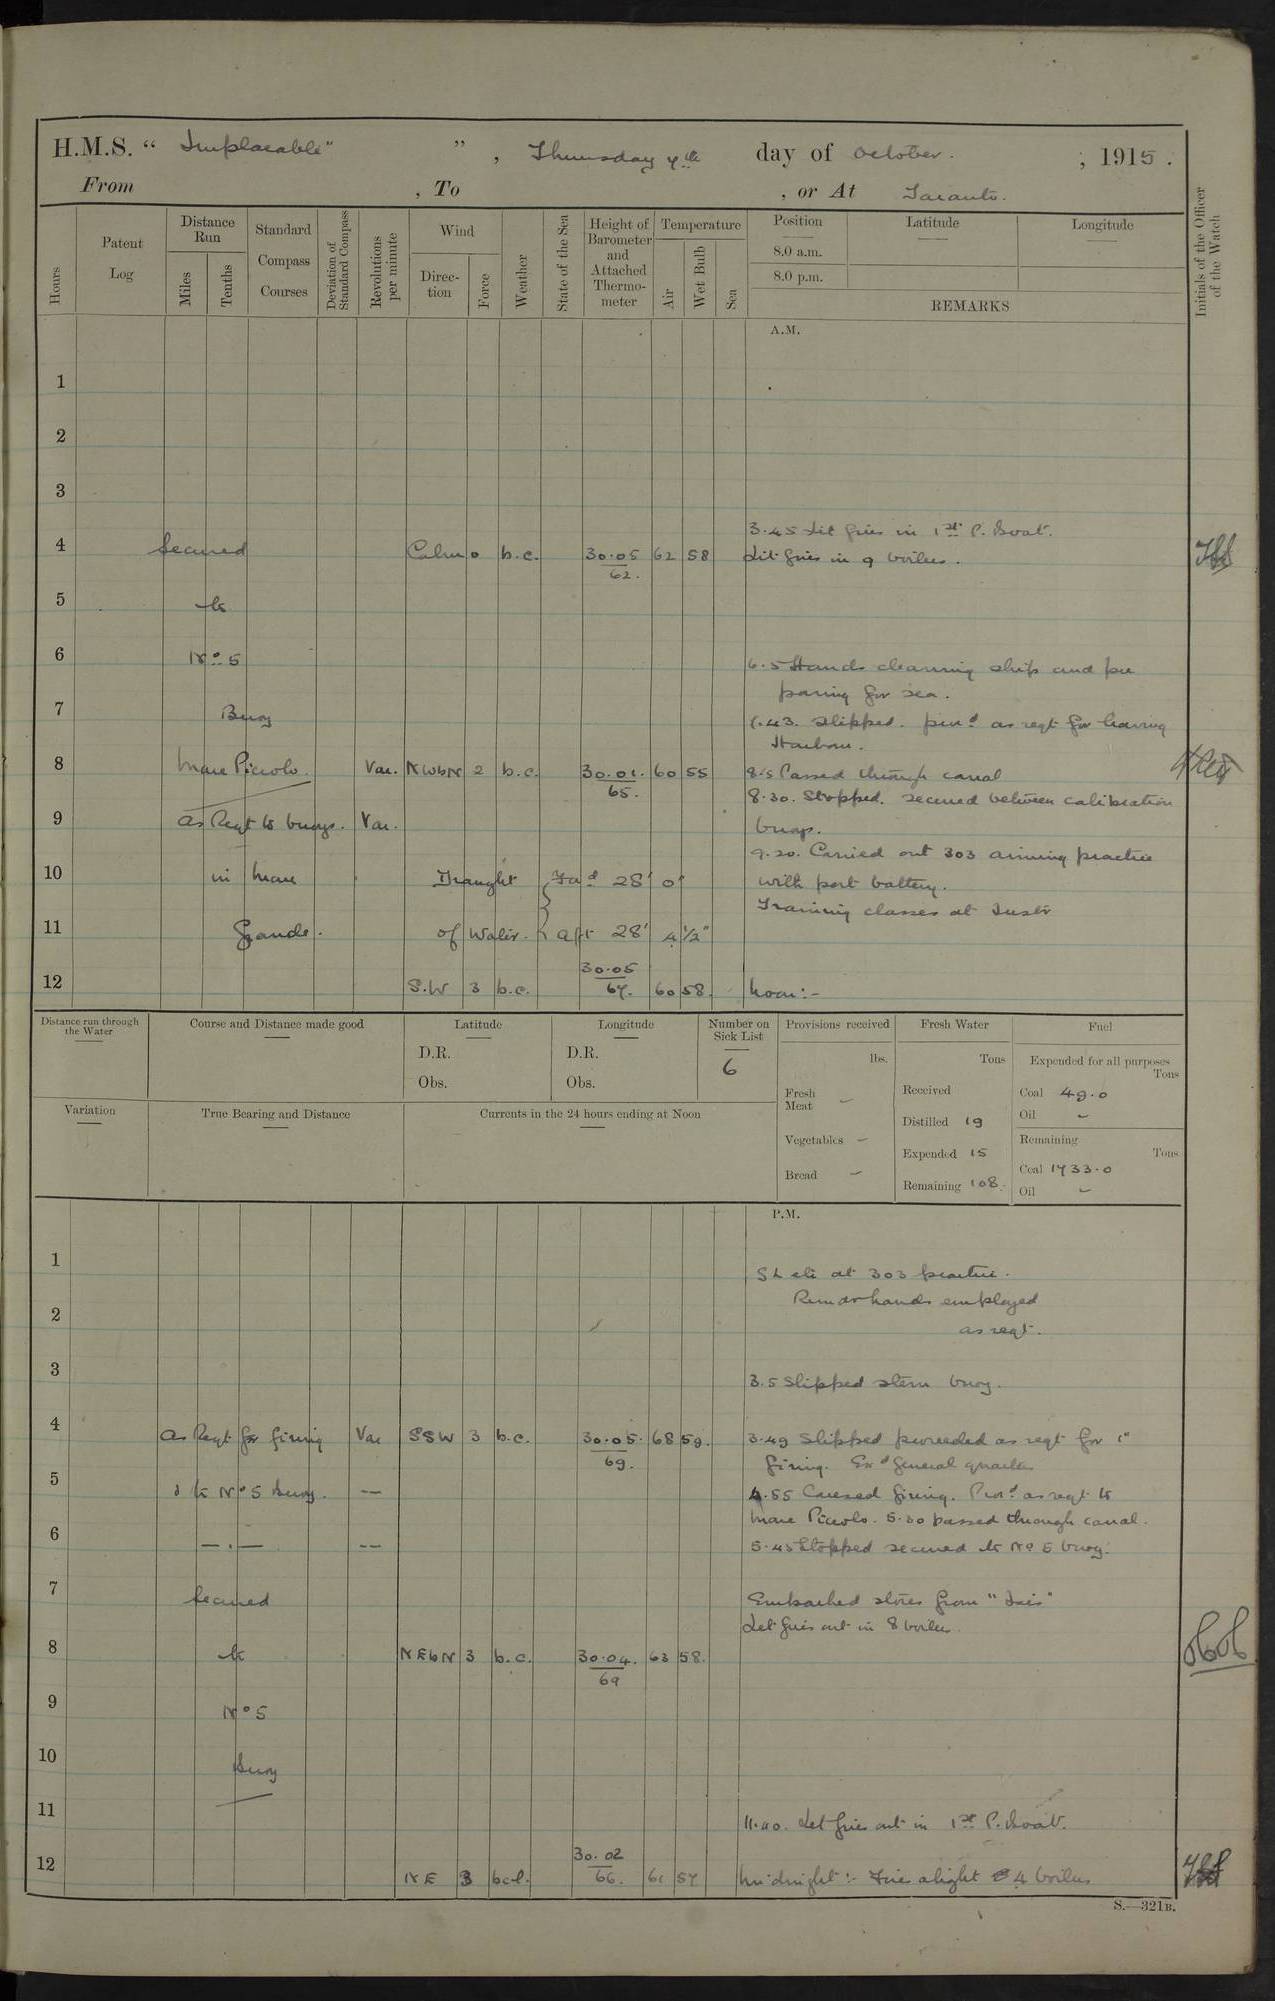 H.M.S. " Implacable" ", Thursday 7th day of October. , 1915.
From , To , or At Taranto.
Hours
Patent Log
Distance Run
Miles
Tenths
Standard Compass Courses
Deviation of Standard Compass
Revolutions per minute
Wind
Direction
Force
Weather
State of the Sea
Height of Barometer and Attached Thermometer
Temperature
Air
Wet Bulb
Sea
Position
8.0 a.m.
8.0 p.m.
Latitude
Longitude
REMARKS
Initials of the Officer of the Watch
A.M.
1
2
3
3.45 Lit fires in 1st P. Boat.
4 Secured Calm 0 b.c. 30.05 62 58 Lit fires in 9 boilers.
62.
5 to
6 No 5
6.5 Hands cleaning ship and pre
paring for sea.
7 Buoy
7.43. Slipped. procd as reqt for leaving
Harbour.
8 Mare Piccolo. Var. NWbN 2 b.c. 30.01. 60 55 8.5 Passed through canal
65.
8.30. Stopped. secured between calibration
9 as Reqt to buoys. Var. buoys.
9.20. Carried out 303 aiming practice
10 in Mare Draught Ford 28' 0" with port battery.
Training classes at Instr
11 Grande. of Water. aft 28' 4 1/2"
12 S.W 3 b.c. 30.05 60 58. Noon:-
67.
Distance run through the Water
Course and Distance made good
Latitude
D.R.
Obs.
Longitude
D.R.
Obs.
Number on Sick List
6
Provisions received
lbs.
Fresh Meat –
Vegetables –
Bread –
Fresh Water
Tons
Received
Distilled 19
Expended 15
Remaining 108.
Fuel
Expended for all purposes
Tons
Coal 49.0
Oil –
Remaining
Tons
Coal 1733.0
Oil –
Variation
True Bearing and Distance
Currents in the 24 hours ending at Noon
P.M.
1
at 303 practice.
2 Remdr hands employed
as reqt.
3
3.5 Slipped stern buoy.
4 As Reqt for firing Var SSW 3 b.c. 30.05. 68 59. 3.49 Slipped proceeded as reqt for 1"
69.
firing. Exd General quarters
5 & to No 5 Buoy. — 4.55 Ceased firing. Procd as reqt to
Mare Piccolo. 5.30 passed through canal.
6 — . — -- 5.45 Stopped secured to No 5 buoy.
7 Secured Embarked stores from "Isis"
Let fires out in 8 boilers.
8 to NEbN 3 b.c. 30.04. 63 58.
69
9 No 5
10 Buoy
11
11.40. Let fires out in 1st P. Boat.
12 NE 3 bcl. 30.02 61 57 Midnight:- Fires alight 4 boilers
66.
S.—321B.